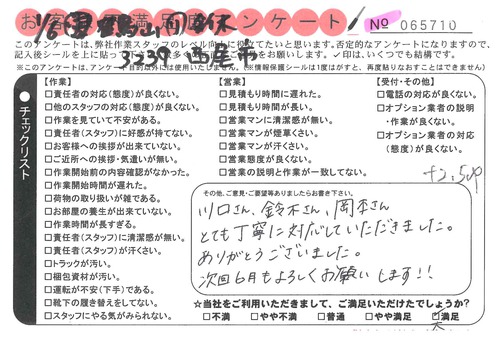 お客様満足度アンケート！
No 065710
このアンケートは、弊社作業スタッフのレベル向上に役立てたいと思います。否定的なアンケートになりますので、
※このアンケートは、アンケート目的以外には使用いたしません。(※情報保護シールは1度がすと、再度貼りなおすことはできません)
チェックリスト
【作業】
□責任者の対応(態度)が良くない。
□他のスタッフの対応(態度)が良くない。
□作業を見ていて不安がある。
□責任者(スタッフ)に好感が持てない。
□お客様への挨拶が出来ていない。
□ご近所への挨拶・気遣いが無い。
□作業開始前の内容確認がなかった。
□作業開始時間が遅れた。
□荷物の取り扱いが雑である。
□お部屋の養生が出来ていない。
□作業時間が長すぎる。
□責任者(スタッフ)に清潔感が無い。
□責任者(スタッフ)が汗くさい。
□トラックが汚い。
□梱包資材が汚い。
□運転が不安(下手)である。
□靴下の履き替えをしてない。
□スタッフにやる気がみられない。
【営業】
□見積もり時間に遅れた。
□見積もり時間が長い。
□営業マンに清潔感が無い。
□営業マンが煙草くさい。
□営業マンが汗くさい。
□営業態度が良くない。
□営業の説明と作業が一致してない。
【受付・その他】
□電話の対応が良くない。
□オプション業者の説明
・作業が良くない。
□オプション業者の対応
(態度)が良くない。
+2.5up
その他、ご意見・ご要望等ありましたらお書き下さい。
川口さん、鈴木さん、岡本さん
とても丁寧に対応していただきました。
ありがとうございました。
次回6月もよろしくお願いします!!
☆当社をご利用いただきまして、ご満足いただけたでしょうか?
□不満 □やや不満 □普通 □やや満足 □満足